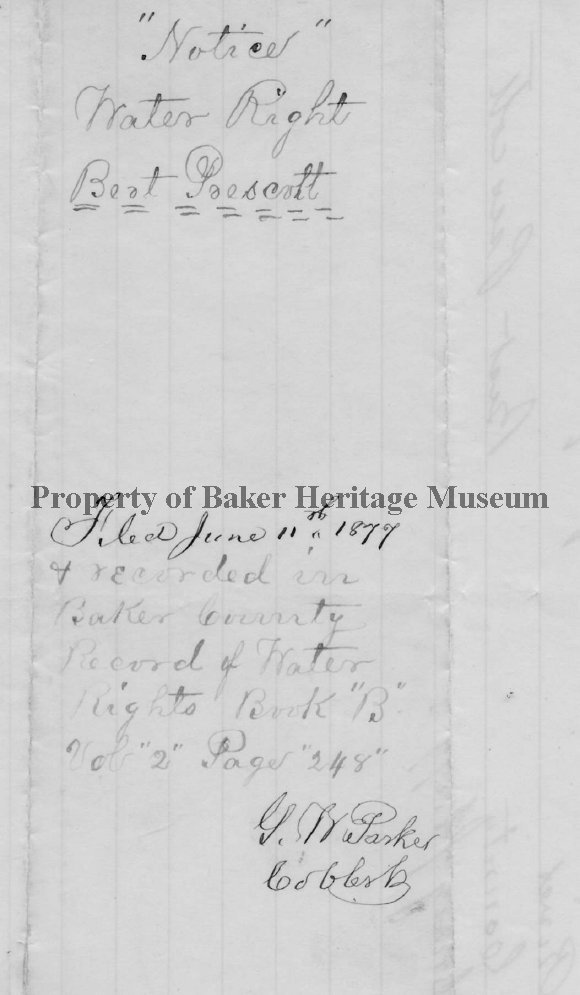 "Notice"
Water Right
Bert Prescott
Property of Baker Heritage Museum
Filed June 11th 1877
& recorded in
Baker County
Record of Water
Rights Book "B"
Vol "2" Page "248"
G. W. Parker
Co Clerk